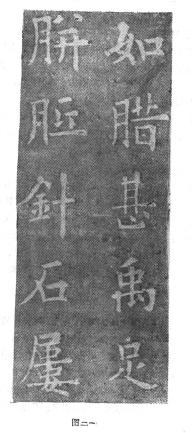 如腊甚禹足
胼胝針石屢
图二一